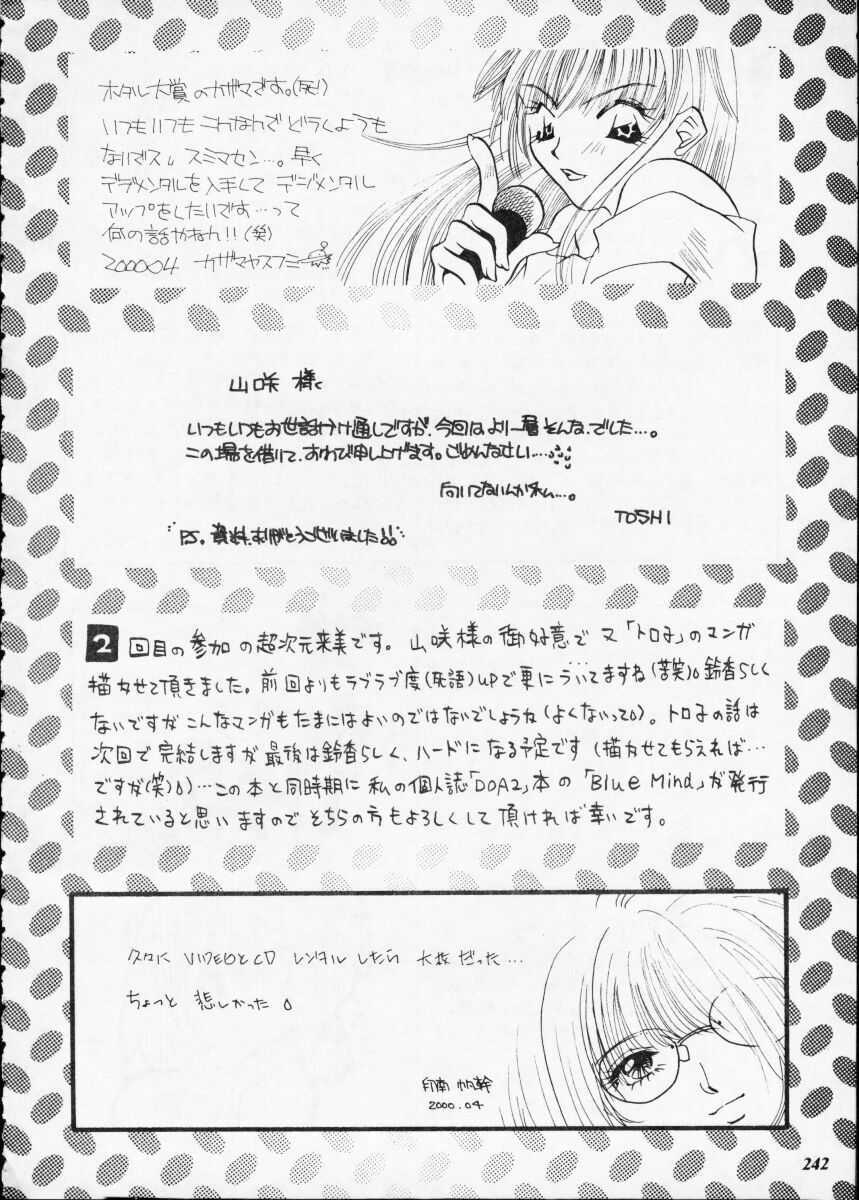 ホタル大賞のカザマです。(死)
いつもいつもこんなんでどうしようも
ないデス。スミマセン…。早く
デジメンタルを入手して デジメンタル
アップをしたいです…って
何の話やねん!!(笑)
200004 カザマヤスフミ
山咲 様へ
いつもいつもお世話かけ通しですが、今回はより一層そんな、でした…。
この場を借りて、おわび申し上げます。ごめんなさい…
向いてないんかなぁ…。
TOSHI
PS. 資料、ありがとうございました!!
2回目の参加の超次元来美です。山咲様の御好意で又「トロ子」のマンガ
描かせて頂きました。前回よりもラブラブ度(死語)UPで更にういてますね(苦笑)。鈴香らしく
ないですがこんなマンガもたまにはよいのではないでしょうね(よくないって)。トロ子の話は
次回で完結しますが最後は鈴香らしく、ハードになる予定です(描かせてもらえれば…
ですが(笑))…この本と同時期に私の個人誌「DOA2」本の「Blue Mind」が発行
されていると思いますのでそちらの方もよろしくして頂ければ幸いです。
久々に VIDEOとCD レンタルしたら だった…
ちょっと 悲しかった
2000.04
242